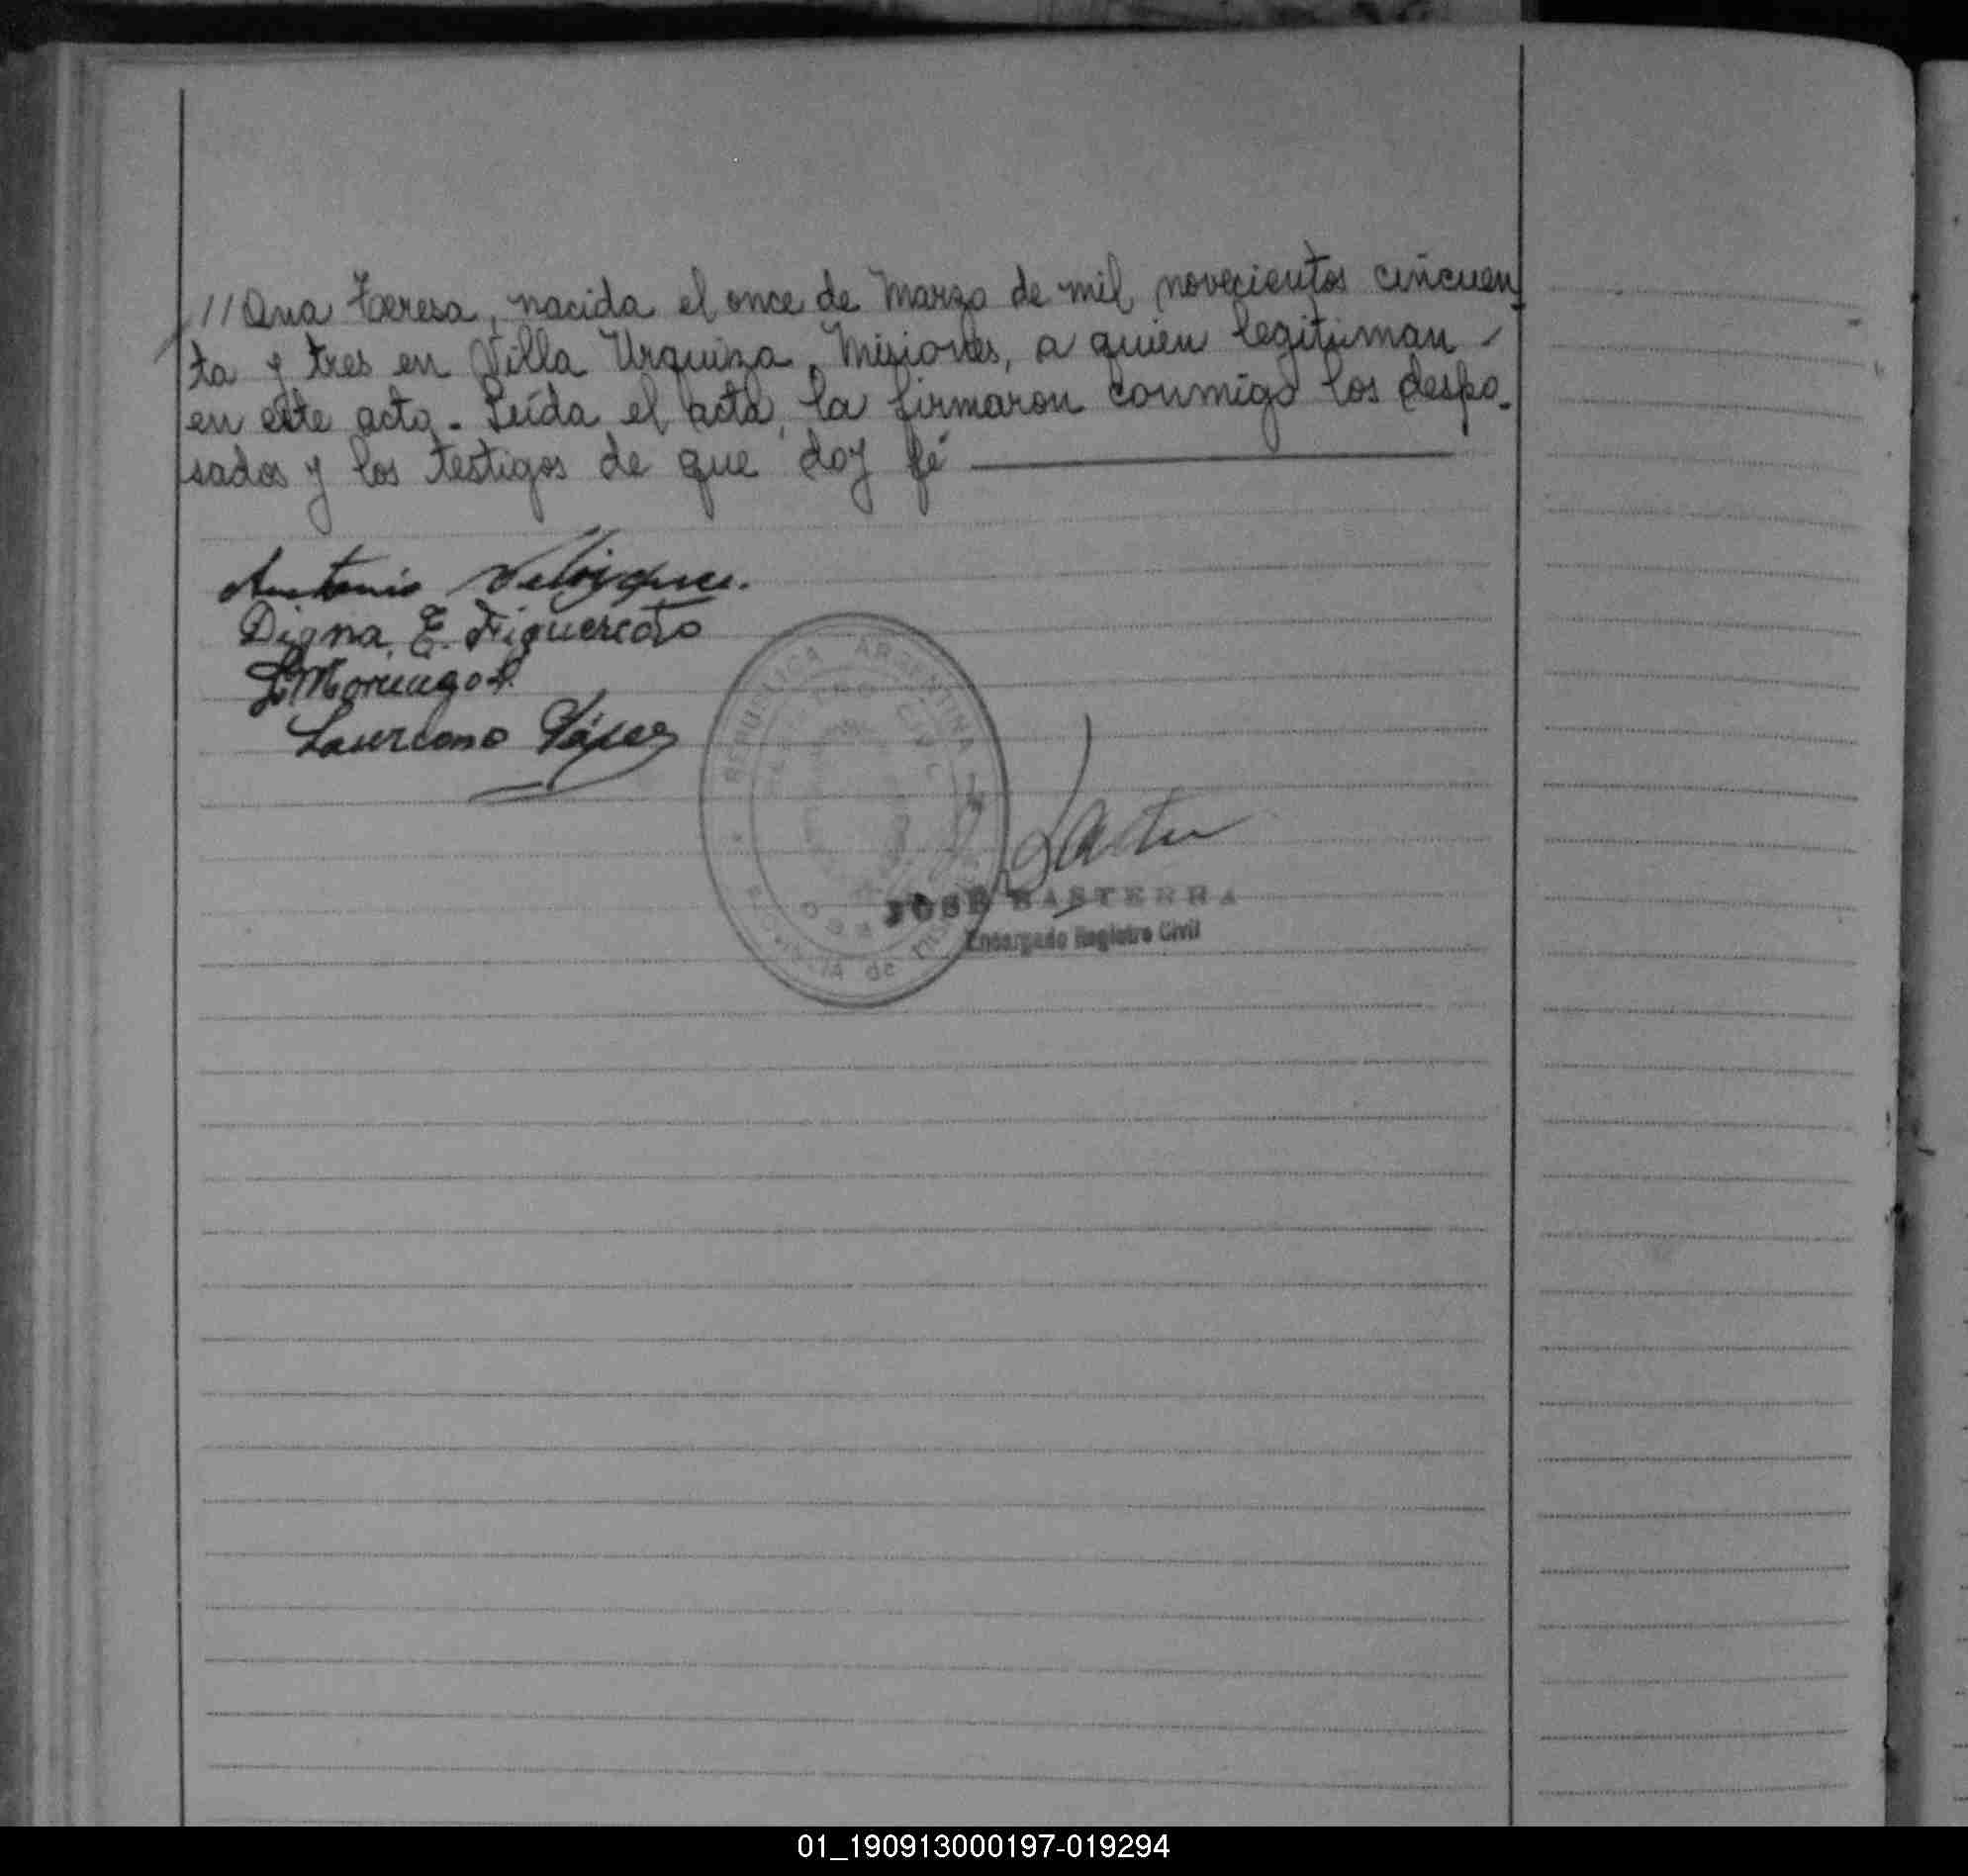 // Ana Teresa, nacida el once de Marzo de mil novecientos cincuen
ta y tres en Villa Urquiza, Misiones, a quien legitiman
en este acto. Leída el acta, la firmaron conmigo los despo-
sados y los testigos de que doy fé
Antonio
Digna E. Figueredo
Laureano López
REPUBLICA ARGENTINA
REGISTRO CIVIL
PROVINCIA de
JOSE BASTERRA
Encargado Registro Civil
01_190913000197-019294